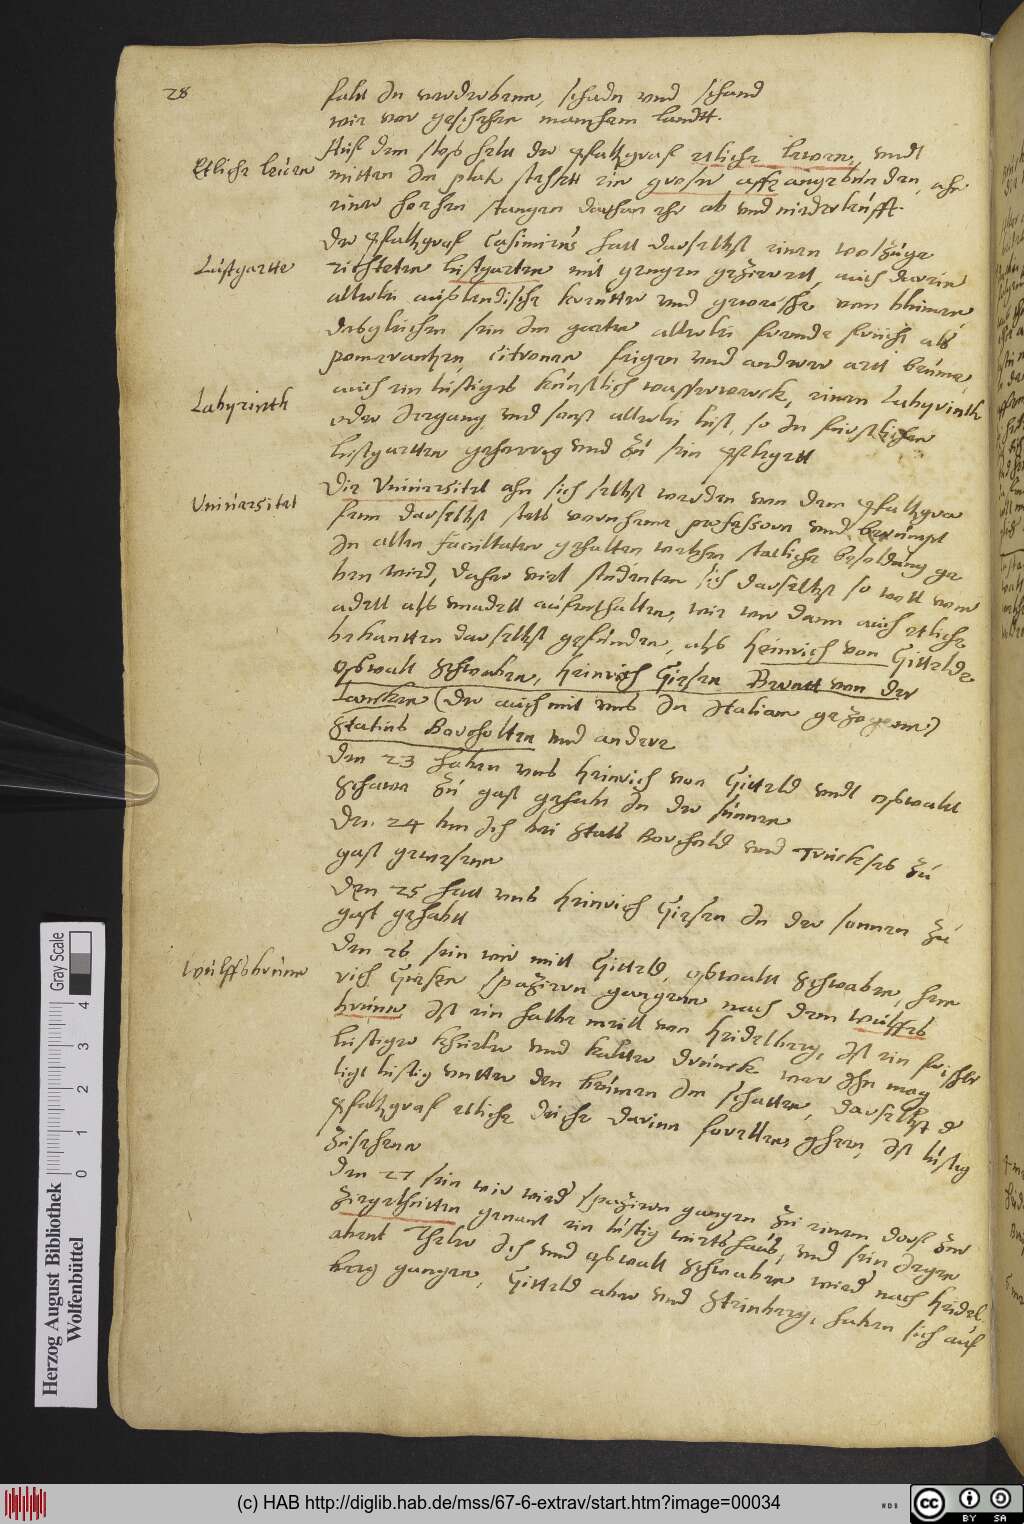 28
fahr in verderbenn, schadn und schand
wie vor geschehen manchem landtt.
Auf dem schlos helt der pfaltzgraf etliche lewen, undt
Etliche leuen
mitten im platz stehett ein groser affe angebunden, ahn
einer hochen stangen daran ehr ab und niederleufft.
Der pfaltzgraf Casimirus hatt daselbst einen wolzuge
Lustgartte
richteten lustgarten mit gengen gezierett, auch darin
allerlei auslendische kreutter und gewechse von blumen
desgleichen sein im garten allerlei fremde frücht als
pomerantzen, Citronen feigen und anderer artt beume,
auch ein lustiges künstlich wasserwerck, einen Labyrinth
Labyrinth
oder Irrgang und sonst allerlei lust, so in fürstlichen
lustgartten gehorrog und zu sein pflegett
Universitet
Die Universitet ahn sich selbst werden von dem pfaltzgra
fenn daselbst stets vornheme professorn und berümpt
in allen faculteten gehalten welchen stadliche besoldung ge
ben wird, daher viel studenten sich daselbst so woll vom
adell als unadell aufenthalten, wie wir dann auch etliche
bekantten daselbst gefunden, als Heinrich von Gittelde
Oswalt Schwaben, Heinrich Giesen Berntt von der
Lancken (der auch mit uns in Italiam gezogenn)
Statius Borcholten und andere
Den 23 haben uns Heinrich von Gitteld undt Oswaldt
Schwaw zu gast gehabt in der sunnen
Den 24 bin ich bei Stats Borcheld und Trucksess zu
gast gewesenn
Den 25 hatt uns Heinrich Giesen in der sonnen zu
gast gehabtt
Den 26 sein wir mitt Gitteld, Oswaltt Schwaben, Hein
Wulffsbrunn
rich Giesen spaziren gangenn nach dem Wulffes
brunn ist ein halbe meill von Heidelberg, ist ein frischer
lustiger khüeler und kalter drunck wer ihn mag
ligt lustig untter den beumen im schatten, daselbst d
pfaltzgraf etliche deiche darinn forellen gehen, ist lustig
zusehenn
Den 27 sein wir wied spaziren gangen zu einem dorf zur
Ziegelhütten genant ein lustig wirtshaus, und sein iegen
abent Theler ich und Oswalt Schwaben wied nach Heidel
berg gangen, Gitteld aber und Steinberg, haben sich auf
Herzog August Bibliothek
Wolfenbüttel
0 1 2 3 4
Gray Scale
(c) HAB http://diglib.hab.de/mss/67-6-extrav/start.htm?image=00034
WDB
cc BY SA